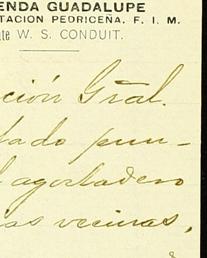 ENDA GUADALUPE
TACION PEDRICEÑA, F. I. M.
te W. S. CONDUIT.
ción Gral.
tado pun-
l agostadero
as vecinas,